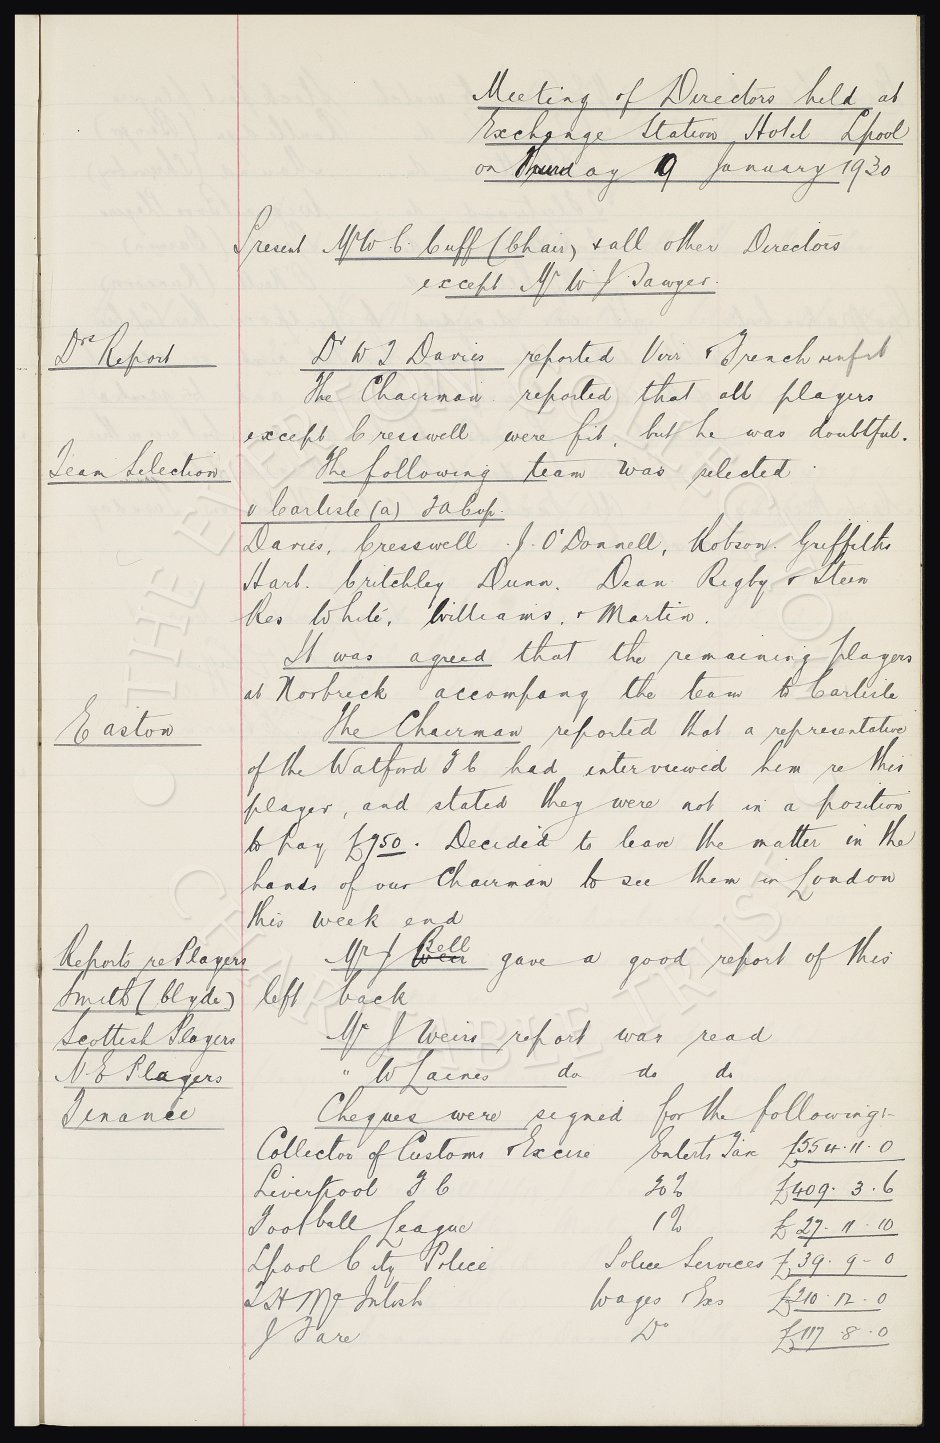 Meeting of Directors held at
Exchange Station Hotel Lpool
on Thursday 9 January 1930
Present Mr W. C. Cuff (Chair) & all other Directors
except Mr W J Sawyer.
Drs Report
Dr W J Davies reported Virr & French unfit
The Chairman reported that all players
except Cresswell were fit, but he was doubtful.
Team Selection
The following team was selected
v Carlisle (a) FA Cup.
Davies, Cresswell J. O'Donnell, Robson. Griffiths
Hart. Critchley Dunn. Dean Rigby & Stein
Res White, Williams, & Martin.
It was agreed that the remaining players
at Norbreck accompany the team to Carlisle
Easton
The Chairman reported that a representative
of the Watford F C had interviewed him re this
player, and stated they were not in a position
to pay £750. Decided to leave the matter in the
hands of our Chairman to see them in London
this week end
Reports re Players
Smith (Clyde)
Mr J Weir Bell gave a good report of this
left back
Scottish Players
Mr J Weirs report was read
N.E Players
" W Laines do do do
Finance
Cheques were signed for the following:-
Collector of Customs & Excise Enterts Tax £554.11.0
Liverpool F C 20% £409.3.6
Football League 1% £27.11.10
Lpool City Police Police Services £39.9.0
T H McIntosh Wages & Exs £210.12.0
J Fare Do £117.8.0
THE EVERTON COLLECTION
CHARITABLE TRUST